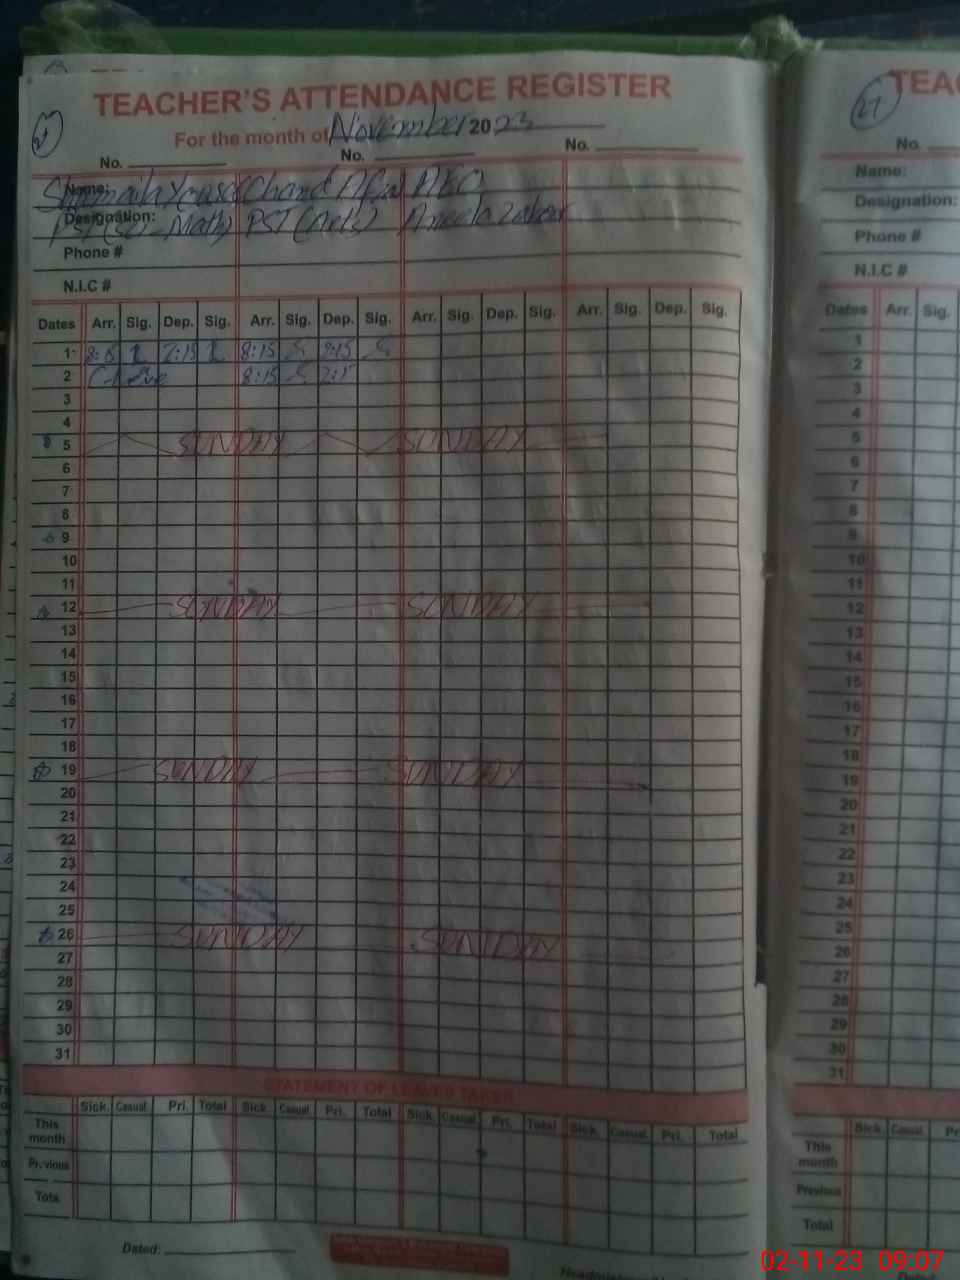 TEACHER'S ATTENDANCE REGISTER
For the month of November 2023
No. No. No.
Name: Chand AEO
Designation: PST (Sci-Math) PST (Arts) Aneela
Phone #
N.I.C #
Dates Arr. Sig. Dep. Sig. Arr. Sig. Dep. Sig. Arr. Sig. Dep. Sig. Arr. Sig. Dep. Sig.
1 8:15 8:15
2 8:15
3
4
5 SUNDAY SUNDAY
6
7
8
9
10
11
12 SUNDAY SUNDAY
13
14
15
16
17
18
19 SUNDAY SUNDAY
20
21
22
23
24
25
26 SUNDAY SUNDAY
27
28
29
30
31
STATEMENT OF LEAVES TAKEN
Sick. Casual. Pri. Total Sick. Casual. Pri. Total Sick. Casual. Pri. Total Sick. Casual. Pri. Total
This month
Previous
Total
Dated:
27
TEAC
No.
Name:
Designation:
Phone #
N.I.C #
Dates Arr. Sig.
1
2
3
4
5
6
7
8
9
10
11
12
13
14
15
16
17
18
19
20
21
22
23
24
25
26
27
28
29
30
31
Sick. Casual. Pr
This month
Previous
Total
02-11-23 09:07